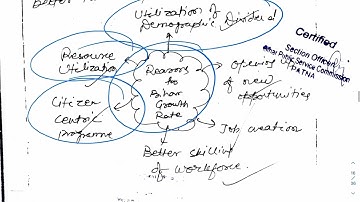 Better
Utilization of
Demographic Dividend
Certified
Section Officer
Bihar Public Service Commission
PATNA
Resource
Utilization
Reasons
to
Bihar
Growth
Rate
Opening
of new
opportunities
Citizen
Centric
Programme
Job creation
Better skilling
of workforce